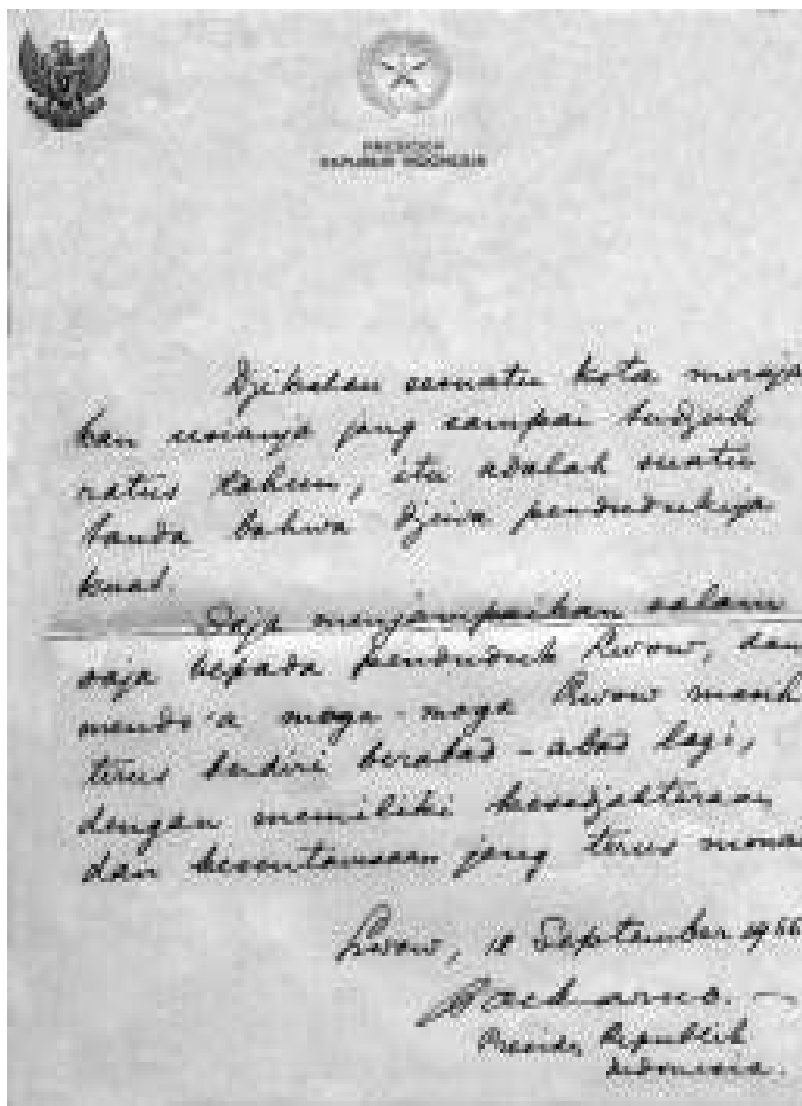 PRESIDEN
REPUBLIK INDONESIA
Djikalau sesuatu kota meraja
kan usianja jang sampai tudjuh
ratus tahun, itu adalah suatu
tanda bahwa djiwa penduduknja
kuat.
Saja menjampaikan salam
saja kepada penduduk Lwow, dan
mendo'a moga-moga Lwow masih
terus berdiri berabad-abad lagi,
dengan memiliki kesedjahteraan
dan kesentausaan jang terus
Lwow, September 1956
Soekarno.
Presiden Republik
Indonesia.